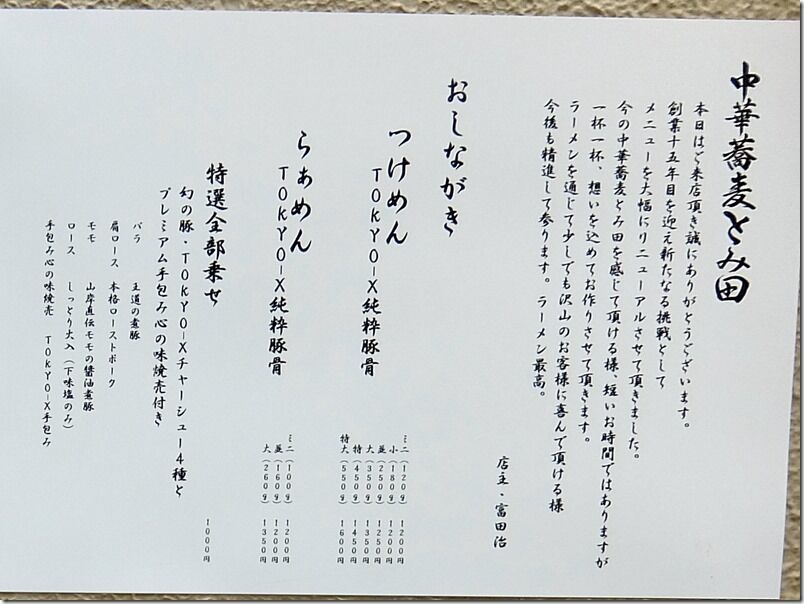 中華蕎麦とみ田
本日はご来店頂き誠にありがとうございます。
創業十五年目を迎え新たなる挑戦として
メニューを大幅にリニューアルさせて頂きました。
今の中華蕎麦とみ田を感じて頂ける様、短いお時間ではありますが
一杯一杯、想いを込めてお作りさせて頂きます。
ラーメンを通じて少しでも沢山のお客様に喜んで頂ける様
今後も精進して参ります。ラーメン最高。
店主・富田治
おしながき
つけめん
TOKYO-X純粋豚骨
ミニ(120g) 1200円
小(180g) 1200円
並(250g) 1250円
大(350g) 1350円
特(450g) 1450円
特大(550g) 1600円
らぁめん
TOKYO-X純粋豚骨
ミニ(100g) 1200円
並(160g) 1200円
大(260g) 1350円
特選全部乗せ 1000円
幻の豚・TOKYO-Xチャーシュー4種と
プレミアム手包み心の味焼売付き
バラ 王道の煮豚
肩ロース 本格ローストポーク
モモ 山岸直伝モモの醤油煮豚
ロース しっとり大入(下味塩のみ)
手包み心の味焼売 TOKYO-X手包み